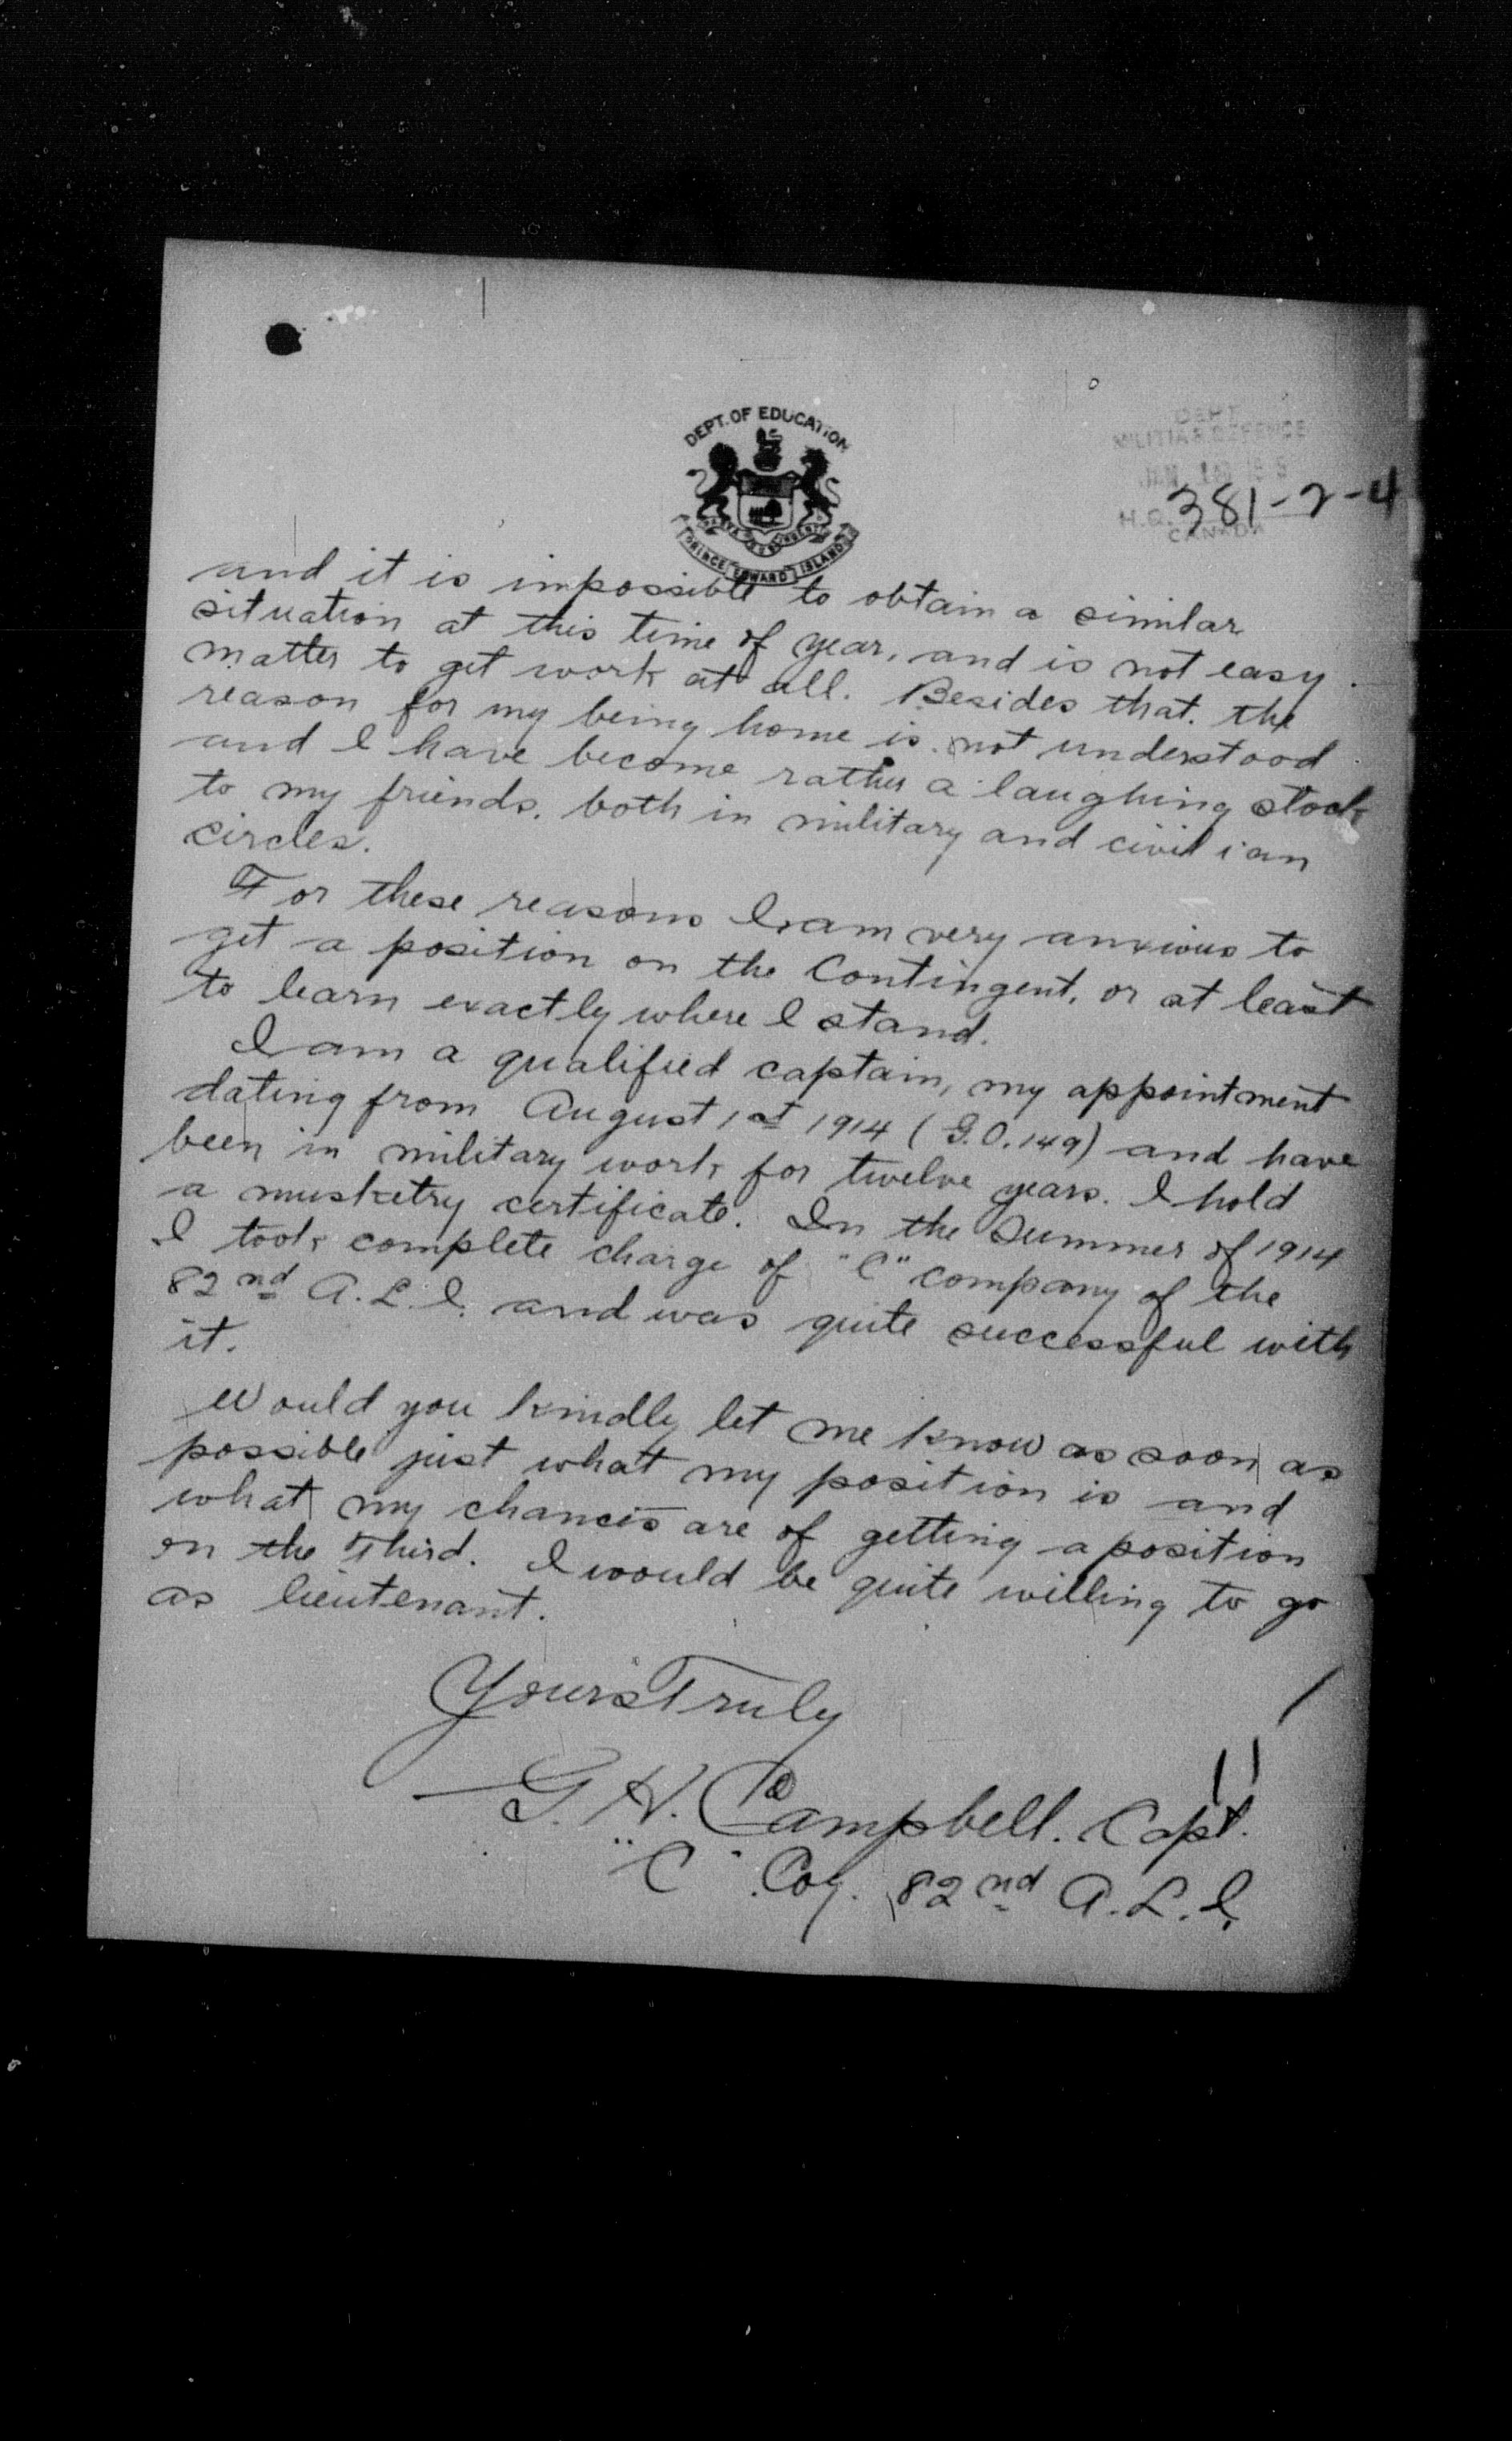 DEPT. OF EDUCATION
PRINCE EDWARD ISLAND
DEPT.
MILITIA & DEFENCE
JAN
H.Q. 381-2-4
CANADA
and it is impossible to obtain a similar
situation at this time of year, and is not easy
matter to get work at all. Besides that, the
reason for my being home is not understood
and I have become rather a laughing stock
to my friends, both in military and civilian
circles.
For these reasons I am very anxious to
get a position on the Contingent, or at least
to learn exactly where I stand.
I am a qualified captain, my appointment
dating from August 1st 1914 (G.O. 149) and have
been in military work for twelve years. I hold
a musketry certificate. In the Summer of 1914
I took complete charge of "C" company of the
82nd A.L.I. and was quite successful with
it.
Would you kindly let me know as soon as
possible just what my position is and
what my chances are of getting a position
on the Third. I would be quite willing to go
as lieutenant.
Yours Truly
G. H. Campbell. Capt.
"C" Coy. 82nd A.L.I.